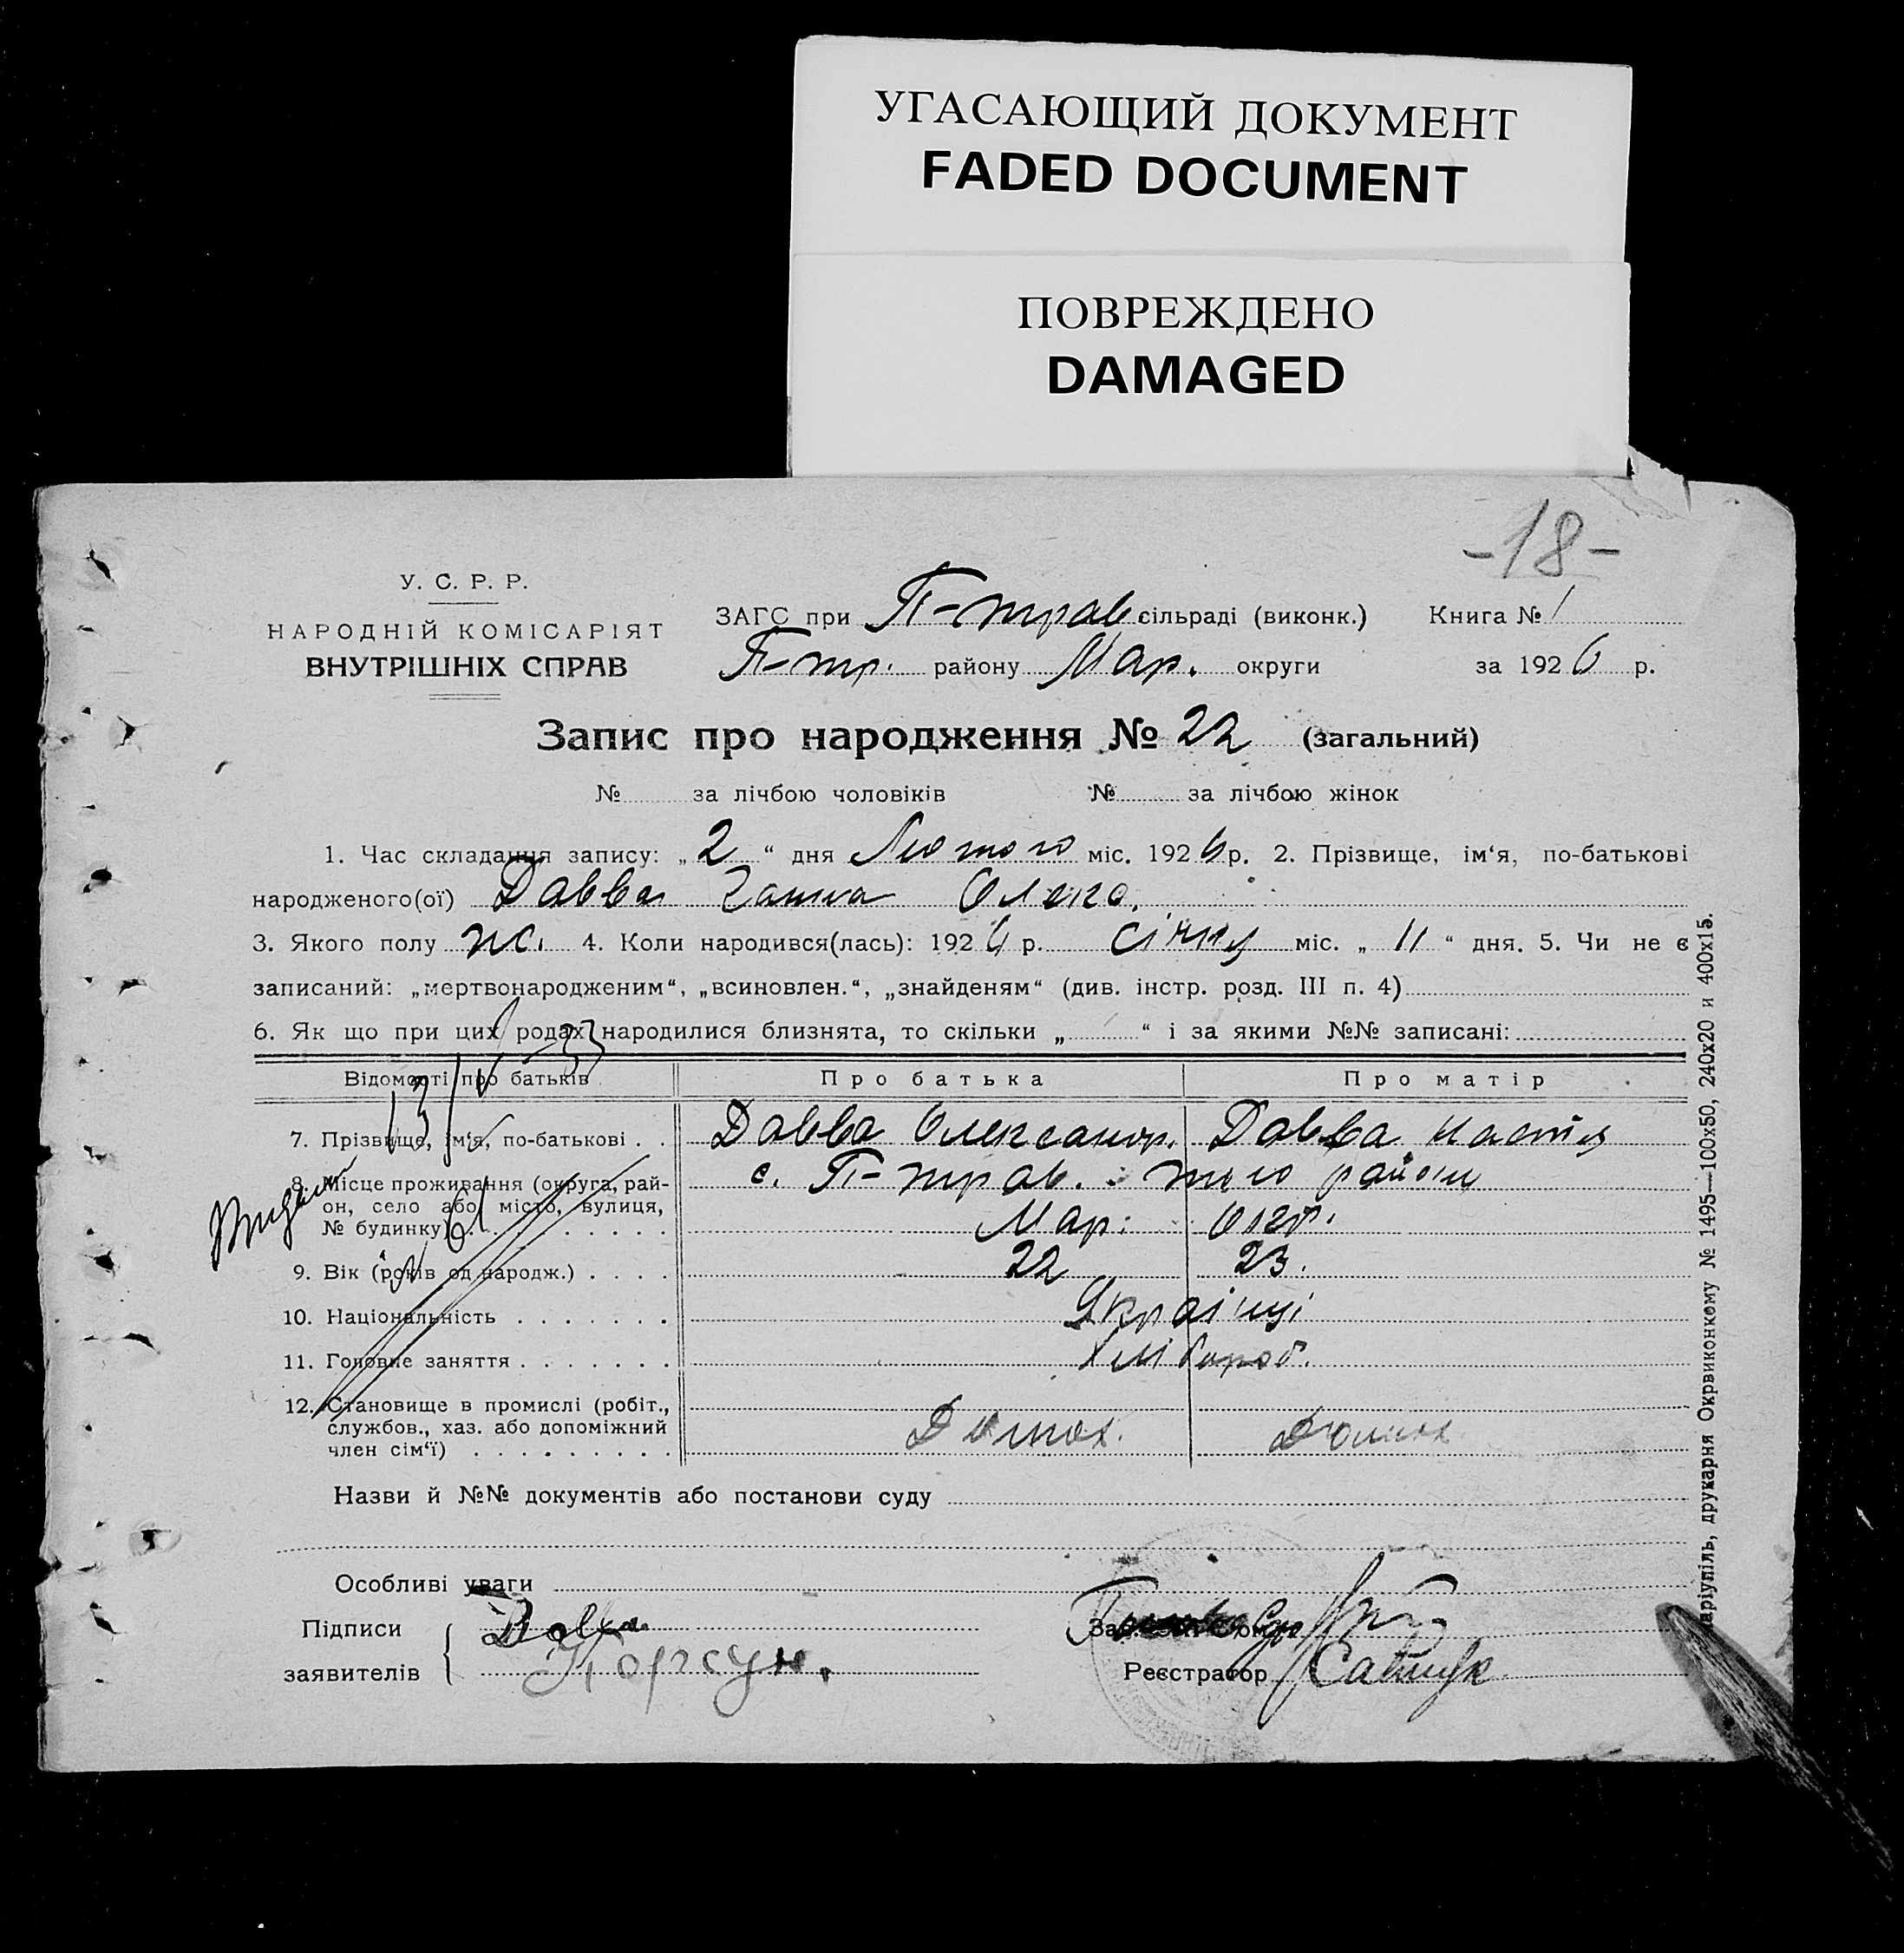 УГАСАЮЩИЙ ДОКУМЕНТ
FADED DOCUMENT
ПОВРЕЖДЕНО
DAMAGED
-18-
У. С. Р. Р.
НАРОДНІЙ КОМІСАРІЯТ
ВНУТРІШНІХ СПРАВ
ЗАГС при П-трав сільраді (виконк.) Книга № 1
П-тр. району Мар. округи за 1926 р.
Запис про народження № 22 (загальний)
№ за лічбою чоловіків № за лічбою жінок
1. Час складання запису: „2“ дня Лютого міс. 1926 р. 2. Прізвище, ім‘я, по-батькові
народженого(ої) Давва Ганна Олекс.
3. Якого полу жі. 4. Коли народився(лась): 1926 р. січня міс. „11“ дня. 5. Чи не є
записаний: „мертвонародженим“, „всиновлен.“, „знайденям“ (див. інстр. розд. III п. 4)
6. Як що при цих родах народилися близнята, то скільки „ “ і за якими №№ записані:
Відомості про батьків Про батька Про матір
7. Прізвище, ім‘я, по-батькові . . Давва Олександр. Давва Настя
8. Місце проживання (округа, рай- с. П-трав. того району
он, село або місто, вулиця,
№ будинку) Мар. Окр.
9. Вік (років од народж.) . . . . 22 23.
10. Національність . . . . . . . Українці
11. Головне заняття . . . . . . . Хлібороб.
12. Становище в промислі (робіт.,
службов., хаз. або допоміжний Домох. Домох
член сім‘ї) . . . . . . . . .
Назви й №№ документів або постанови суду
Особливі уваги
Підписи Давва
заявителів Корсун.
Реєстратор
аріупіль, друкарня Окрвиконкому № 1495—100х50, 240х20 и 400х15.